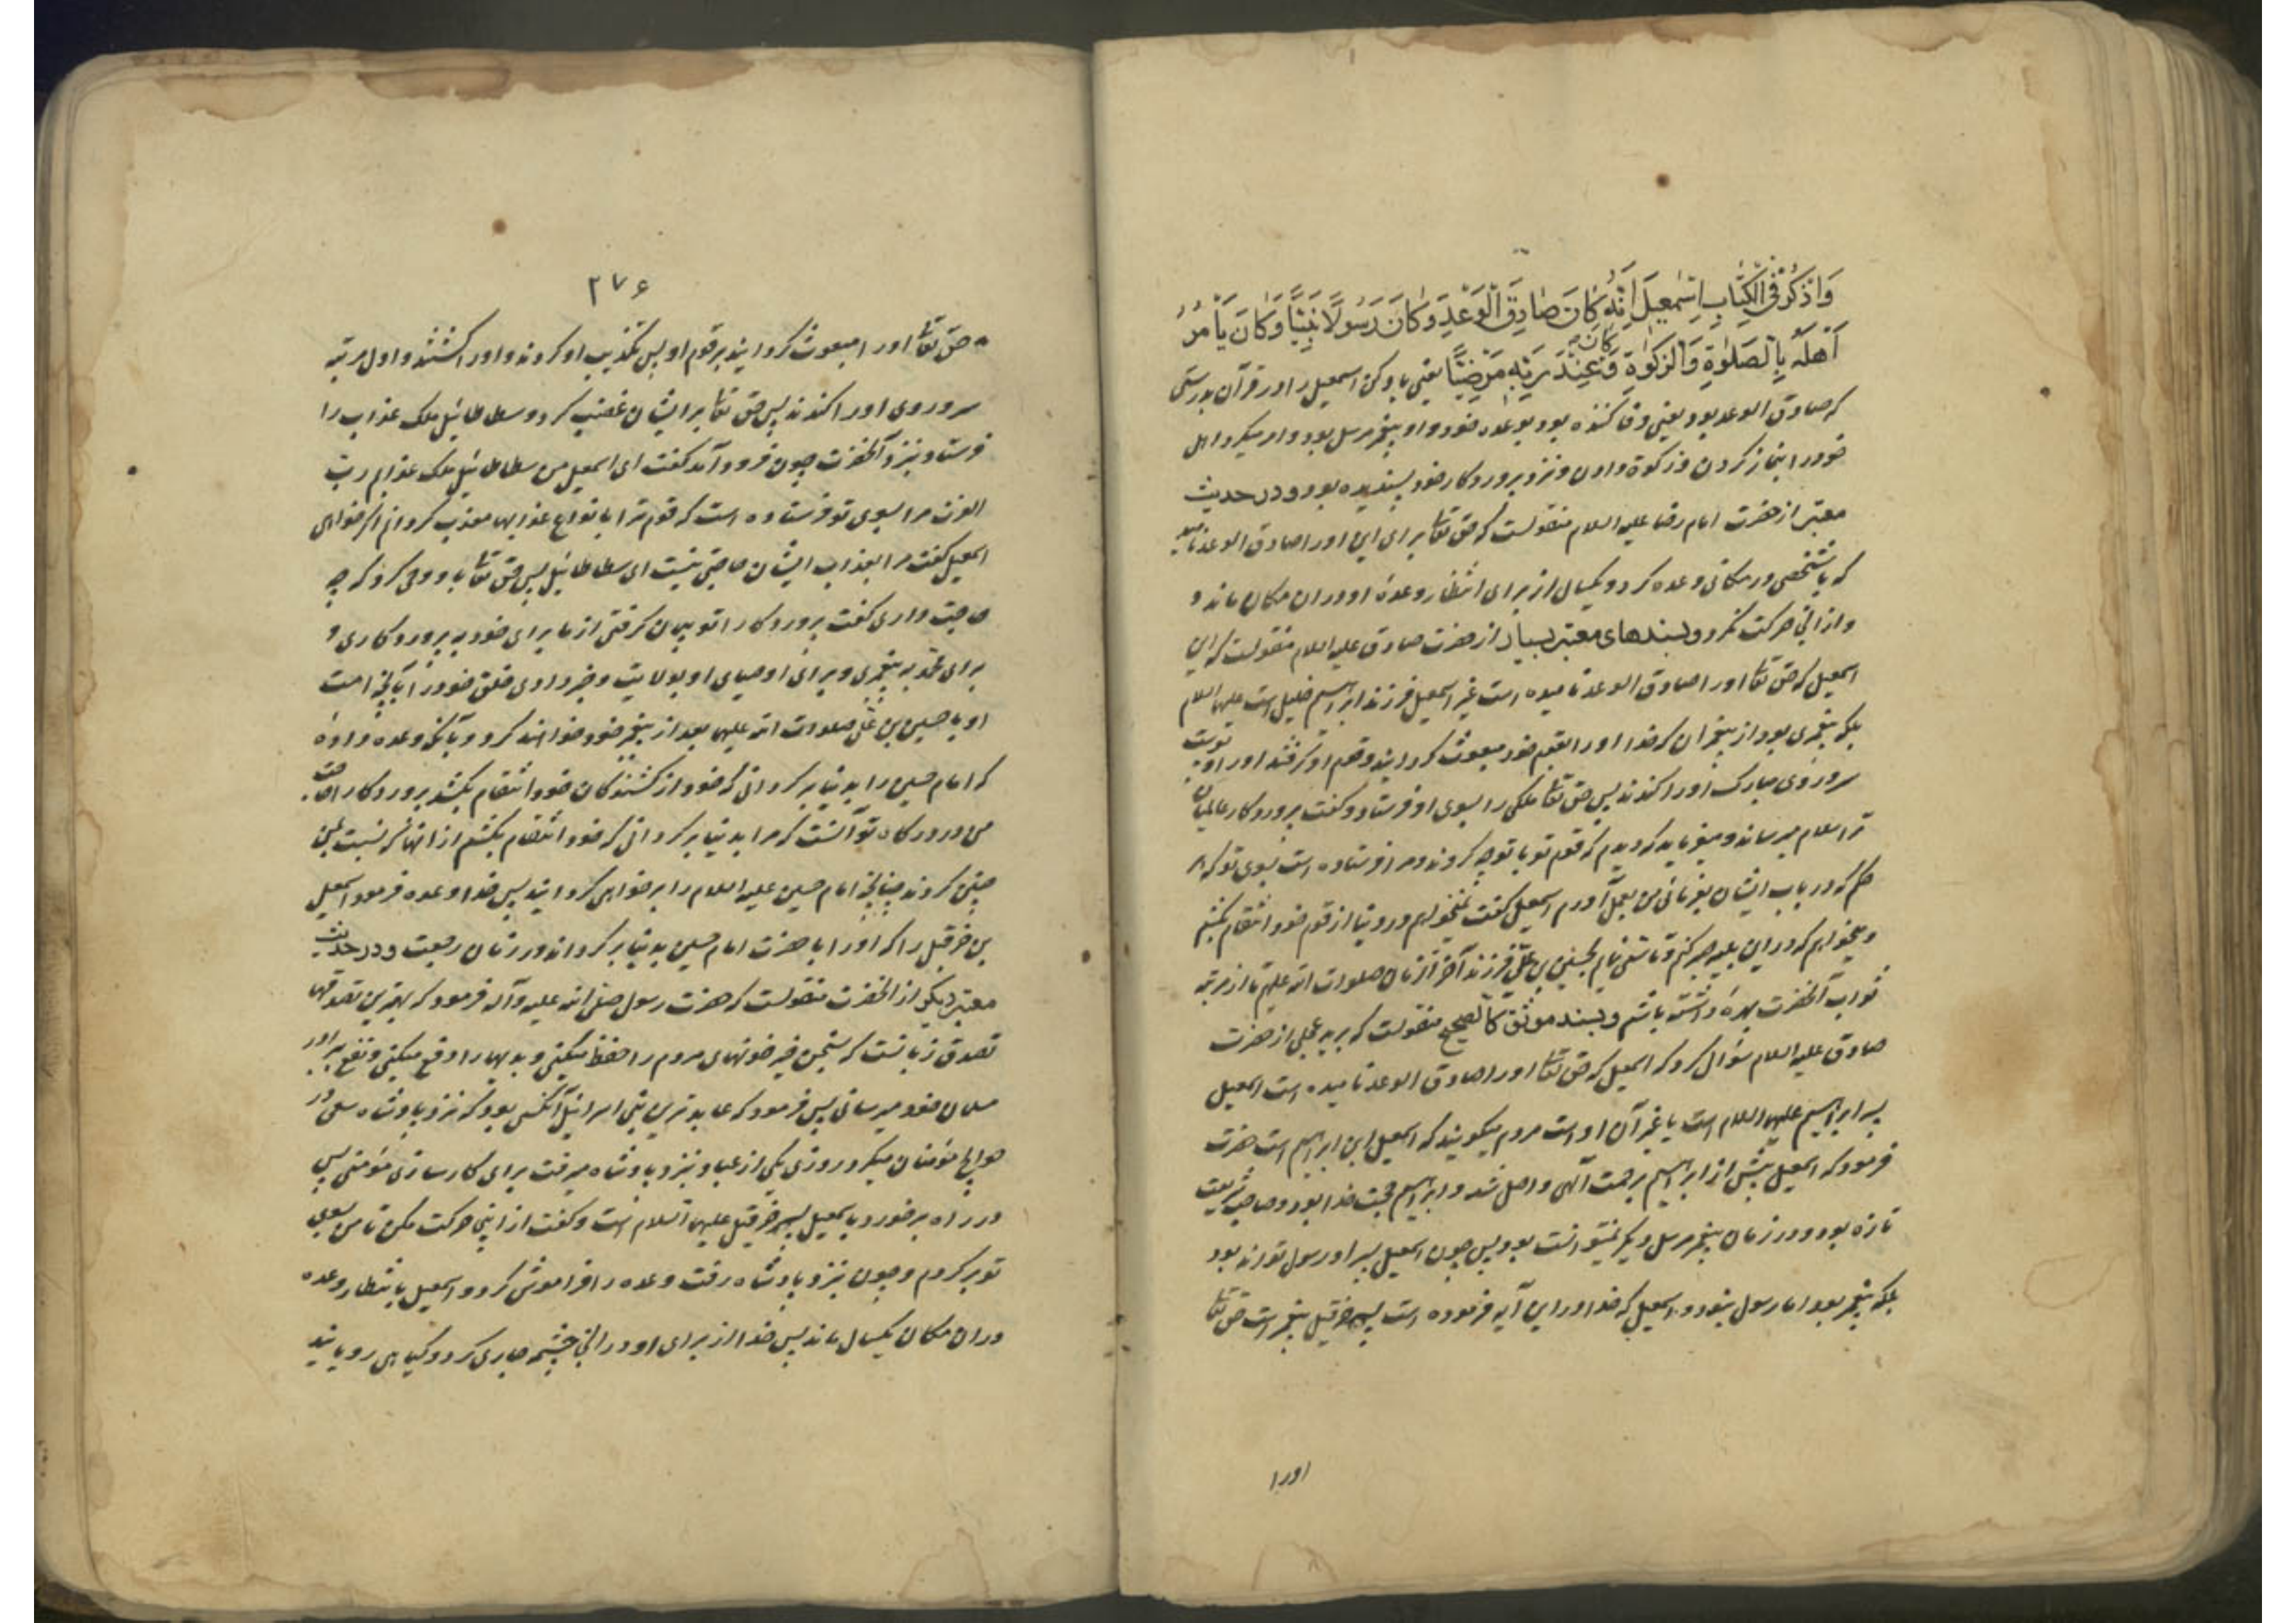 وَاذْكُرْ فِي الْكِتَابِ اِسْمٰعِيلَ اِنَّهُ كَانَ صَادِقَ الْوَعْدِ وَكَانَ رَسُولًا نَبِيًّا وَكَانَ يَاْمُرُ
اَهْلَهُ بِالصَّلٰوةِ وَالزَّكٰوةِ وَ كان عِنْدَ رَبِّهِ مَرْضِيًّا يعنى ياد كن اسمعيل را در قرآن بدرستى
كه صادق الوعد بود يعنى وفا كننده بود بوعده خود و او پيغمبر مرسل بود و امر ميكرد اهل
خود را بنماز كردن و زكوة دادن و نزد پروردكار خود پسنديده بود و در حديث
معتبر از حضرت امام رضا عليه السلام منقولست كه حق تعا براى اين او را صادق الوعد ناميد
كه با شخصى در مكانى وعده كرد و يكسال از براى انتظار وعدهٔ او در ان مكان ماند و
و از انجا حركت نكرد و بسندهاى معتبر بسيار از حضرت صادق عليه السلام منقولست كه اين
اسمعيل كه حق تعا او را صادق الوعد ناميده است غير اسمعيل فرزند ابراهيم خليل است عليهما السلام
بلكه پيغمبرى بود از پيغمبران كه خدا او را بقوم خود مبعوث كردانيد و قوم او كرفتند او را و پوست
سر و روى مبارك او را كندند پس حق تعا ملكى را بسوى او فرستاد و كفت پروردكار عالميان
ترا سلام ميرساند و ميفرمايد كه ديدم كه قوم تو با تو چه كردند و مرا فرستاده است بسوى تو كه هر
حكم كه در باب ايشان بفرمائى من بعمل آورم اسمعيل كفت نميخواهم در دنيا از قوم خود انتقام بكشم
و ميخواهم كه در اين بليه صبر كنم و تاسى نمايم بحسين بن على فرزند آخر الزمان صلوات الله عليهم تا از مرتبه
ثواب آنحضرت بهره داشته باشم و بسند موثق كالصحيح منقولست كه بريد عجلى از حضرت
صادق عليه السلام سؤال كرد كه اسمعيل كه حق تعا او را صادق الوعد ناميده است اسمعيل
پسر ابراهيم عليهما السلام است يا غير آن او است مردم ميكويند كه اسمعيل ابن ابراهيم است حضرت
فرمود كه اسمعيل پيش از ابراهيم برحمت آلهى واصل شد و ابراهيم حجت خدا بود و صاحب شريعت
تازه بود و در زمان پيغمبر مرسل ديكر نميتوانست بود پس چون اسمعيل پسر او رسول تواند بود
بلكه پيغمبر بود اما رسول نبود و اسمعيل كه خدا در اين آيه فرموده است پسر حزقيل پيغمبر است حق تعا
او را
۲۷۶
حق تعا او را مبعوث كردانيد بر قوم او پس تكذيب او كردند و او را كشتند و اول مرتبه
سر و روى او را كندند پس حق تعا بر ايشان غضب كرد و سطاطائيل ملك عذاب را
فرستاد و بنزد آنحضرت چون فرود آمد كفت اى اسمعيل من سطاطائيل ملك عذابم رب
العزت مرا بسوى تو فرستاده است كه قوم ترا بانواع عذابها معذب كردانم اكر خواهى
اسمعيل كفت مرا بعذاب ايشان حاجتى نيست اى سطاطائيل پس حق تعا باو وحى كرد كه چه
حاجت دارى كفت پروردكارا تو پيمان كرفتى از ما براى خود به پروردكارى و
براى محمد به پيغمبرى و براى اوصياى او بولايت و خبر دادى خلق خود را بآنچه امت
او با حسين بن على صلوات الله عليهما بعد از پيغمبر خود خواهند كرد و بآنكه وعده دادهٔ
كه امام حسين را بدنيا بركردانى كه خود از كشندكان خود انتقام بكشد پروردكارا حاجت
من در دركاه تو آنست كه مرا بدنيا بركردانى كه خود انتقام بكشم از انها كه نسبت بمن
چنين كردند چنانچه امام حسين عليه السلام را برخواهى كردانيد پس خدا وعده فرمود اسمعيل
بن حزقيل را كه او را با حضرت امام حسين بدنيا بركرداند در زمان رجعت و در حديث
معتبر ديكر از انحضرت منقولست كه حضرت رسول صلى الله عليه وآله فرمود كه بهترين تصدقها
تصدق زبانست كه بسخن خير خونهاى مردم را حفظ ميكنى و بديها را دفع ميكنى و نفع ببرادر
مسلمان خود ميرسانى پس فرمود كه عابدترين بنى اسرائيل آنكس بود كه نزد پادشاه سعى در
حوايج مؤمنان ميكرد روزى يكى از عباد بنزد پادشاه ميرفت براى كارسازى مؤمنى پس
در راه برخورد باسمعيل پسر حزقيل عليهما السلام است و كفت از اينجا حركت مكن تا من بسوى
تو بركردم و چون بنزد پادشاه رفت وعده را فراموش كرد و اسمعيل بانتظار وعده
در ان مكان يكسال ماند پس خدا از براى او در انجا چشمه جارى كرد و كياهى رويانيد